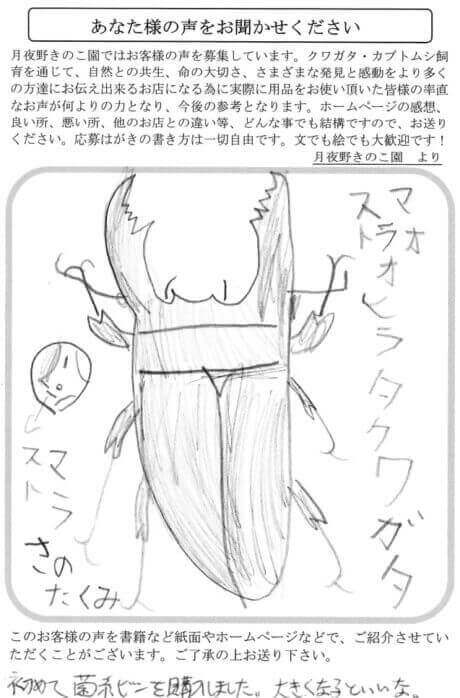 あなた様の声をお聞かせください
月夜野きのこ園ではお客様の声を募集しています。クワガタ・カブトムシ飼
育を通じて、自然との共生、命の大切さ、さまざまな発見と感動をより多く
の方達にお伝え出来るお店になる為に実際に用品をお使い頂いた皆様の率直
なお声が何よりの力となり、今後の参考となります。ホームページの感想、
良い所、悪い所、他のお店との違い等、どんな事でも結構ですので、お送り
ください。応募はがきの書き方は一切自由です。文でも絵でも大歓迎です！
月夜野きのこ園　より
マオ
ストラオヒラタクワガタ
マラ
スト
さのたくみ
このお客様の声を書籍など紙面やホームページなどで、ご紹介させてい
ただくことがございます。ご了承の上お送り下さい。
初めて菌糸ビンを購入しました。大きくなるといいな。